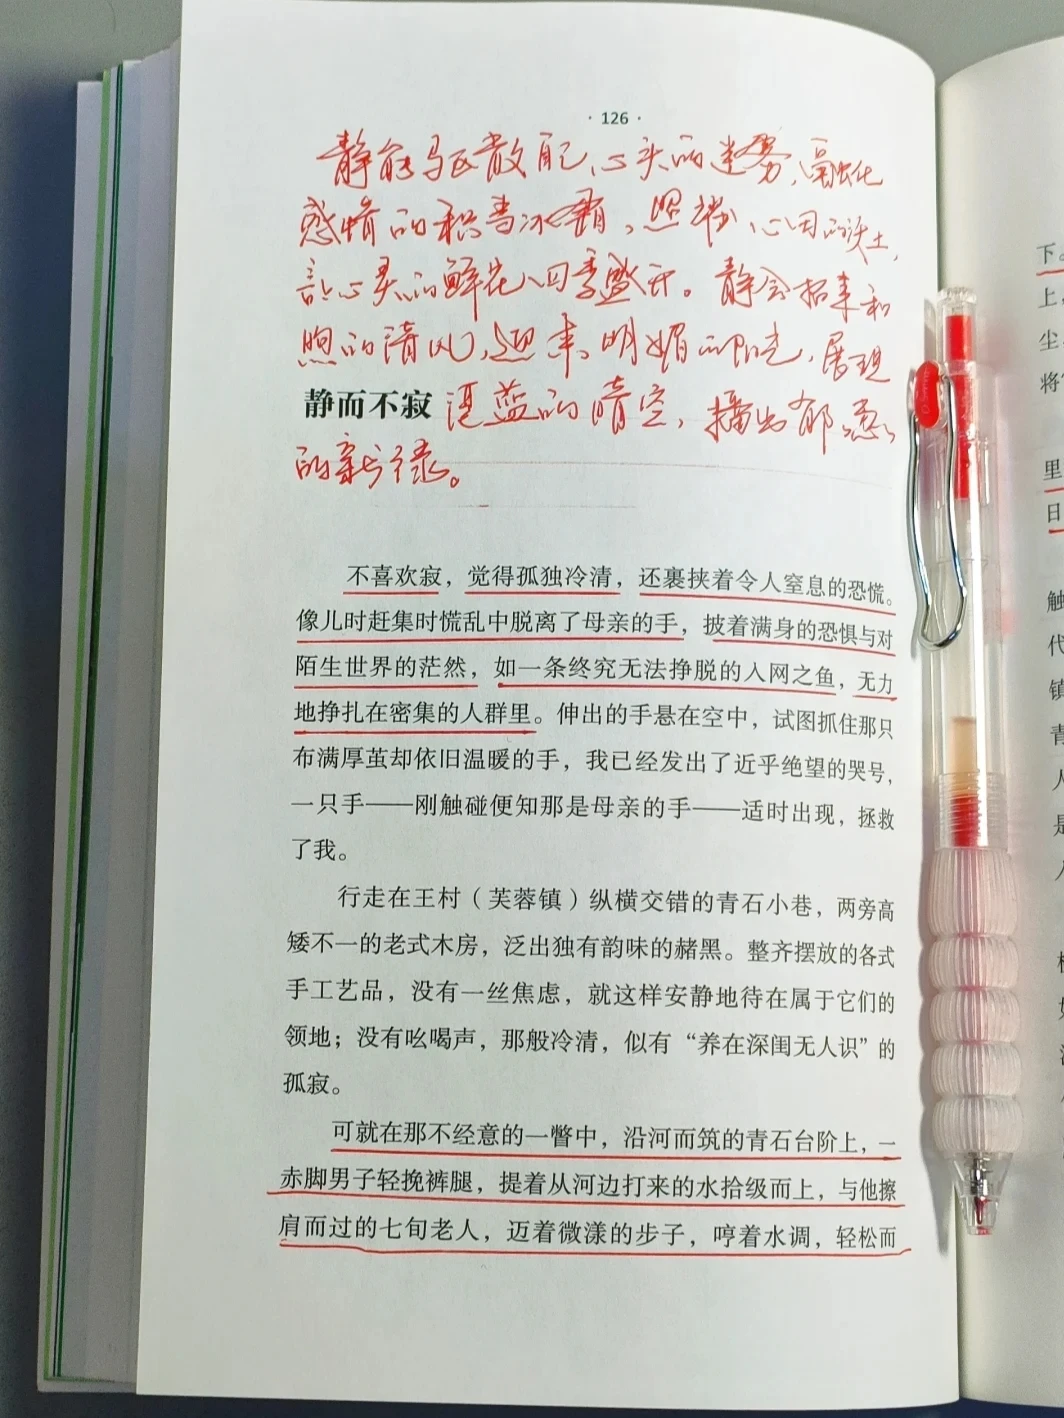 · 126 ·
静能驱散心头的迷雾，融化
感情的积雪冰霜，照耀心田的沃土，
让心灵的鲜花四季盛开。静会招来和
煦的清风，迎来明媚的阳光，展现
静而不寂
湛蓝的晴空，播出郁葱
的新绿。
不喜欢寂，觉得孤独冷清，还裹挟着令人窒息的恐慌。
像儿时赶集时慌乱中脱离了母亲的手，披着满身的恐惧与对
陌生世界的茫然，如一条终究无法挣脱的入网之鱼，无力
地挣扎在密集的人群里。伸出的手悬在空中，试图抓住那只
布满厚茧却依旧温暖的手，我已经发出了近乎绝望的哭号，
一只手——刚触碰便知那是母亲的手——适时出现，拯救
了我。
行走在王村（芙蓉镇）纵横交错的青石小巷，两旁高
矮不一的老式木房，泛出独有韵味的赭黑。整齐摆放的各式
手工艺品，没有一丝焦虑，就这样安静地待在属于它们的
领地；没有吆喝声，那般冷清，似有“养在深闺无人识”的
孤寂。
可就在那不经意的一瞥中，沿河而筑的青石台阶上，一
赤脚男子轻挽裤腿，提着从河边打来的水拾级而上，与他擦
肩而过的七旬老人，迈着微漾的步子，哼着水调，轻松而
下。
上，
尘
将
里
日
触
代
镇
青
人
是